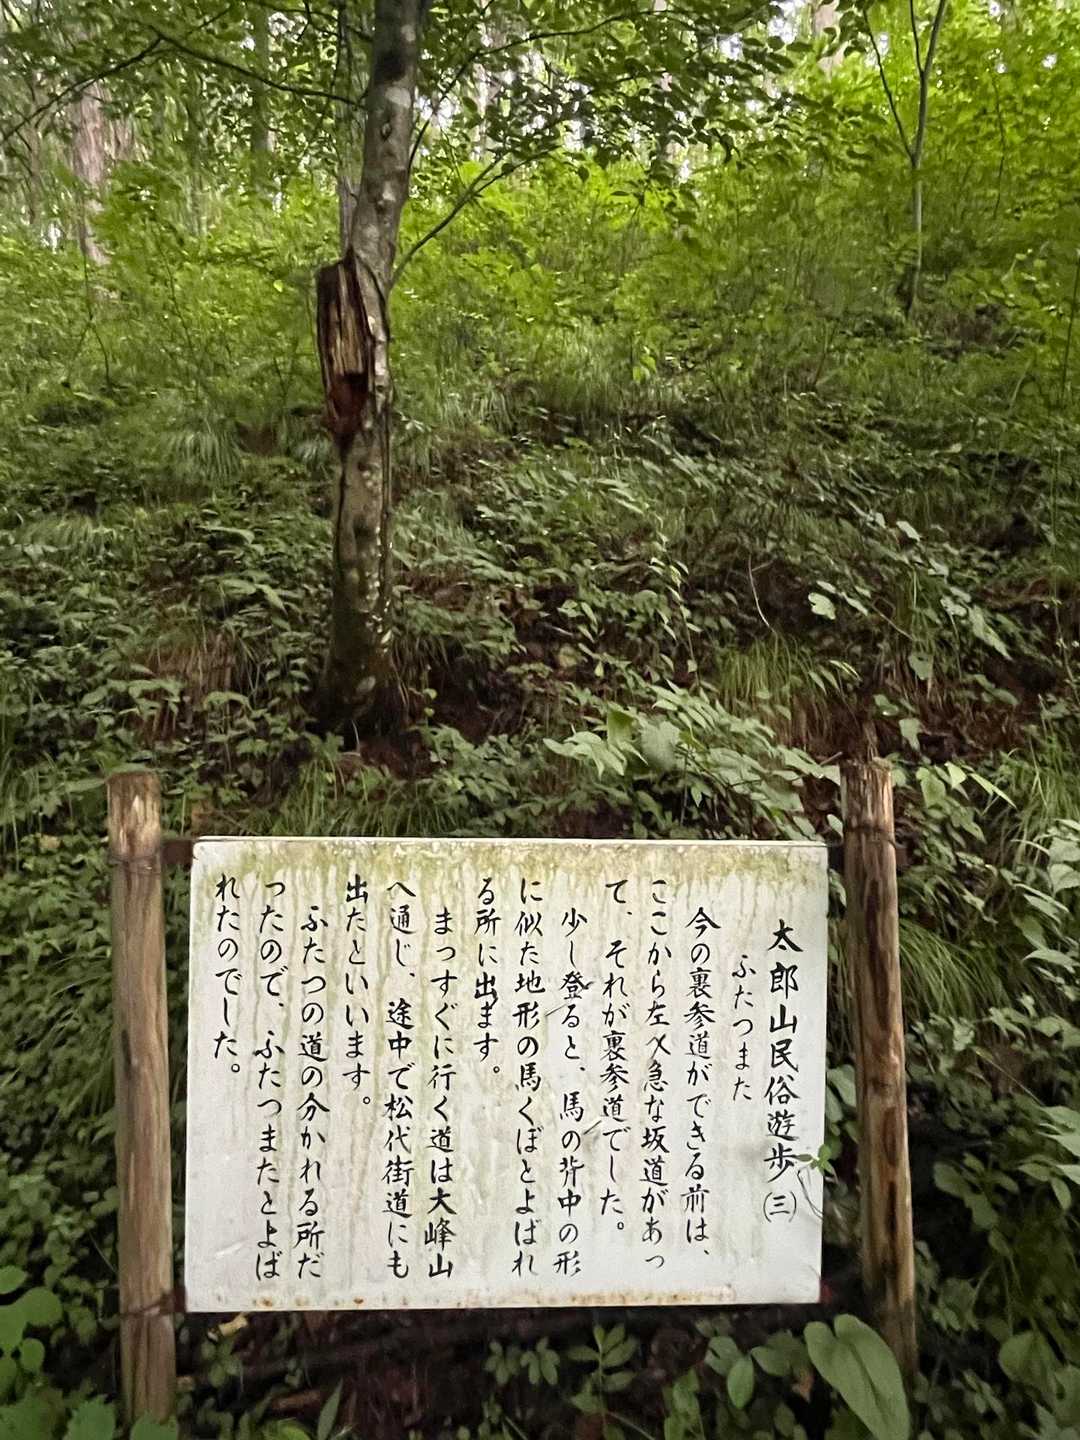 太郎山民俗遊歩(三)
ふたつまた
今の裏参道ができる前は、
ここから左へ急な坂道があっ
て、それが裏参道でした。
少し登ると、馬の背中の形
に似た地形の馬くぼとよばれ
る所に出ます。
まっすぐに行く道は大峰山
へ通じ、途中で松代街道にも
出たといいます。
ふたつの道の分かれる所だ
ったので、ふたつまたとよば
れたのでした。